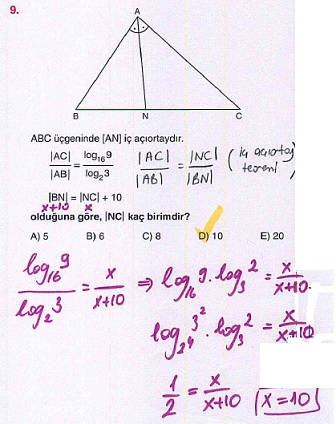 9.
A
B N C
ABC üçgeninde [AN] iç açıortaydır.
|AC| / |AB| = log₁₆9 / log₂3   |AC| / |AB| = |NC| / |BN| (iç açıortay teoremi)
|BN| = |NC| + 10
x+10 x
olduğuna göre, |NC| kaç birimdir?
A) 5 B) 6 C) 8 D) 10 E) 20
log₁₆9 / log₂3 = x / x+10 ⇒ log₁₆9 . log₃2 = x / x+10.
log₂⁴3² . log₃2 = x / x+10
1/2 = x / x+10 x=10